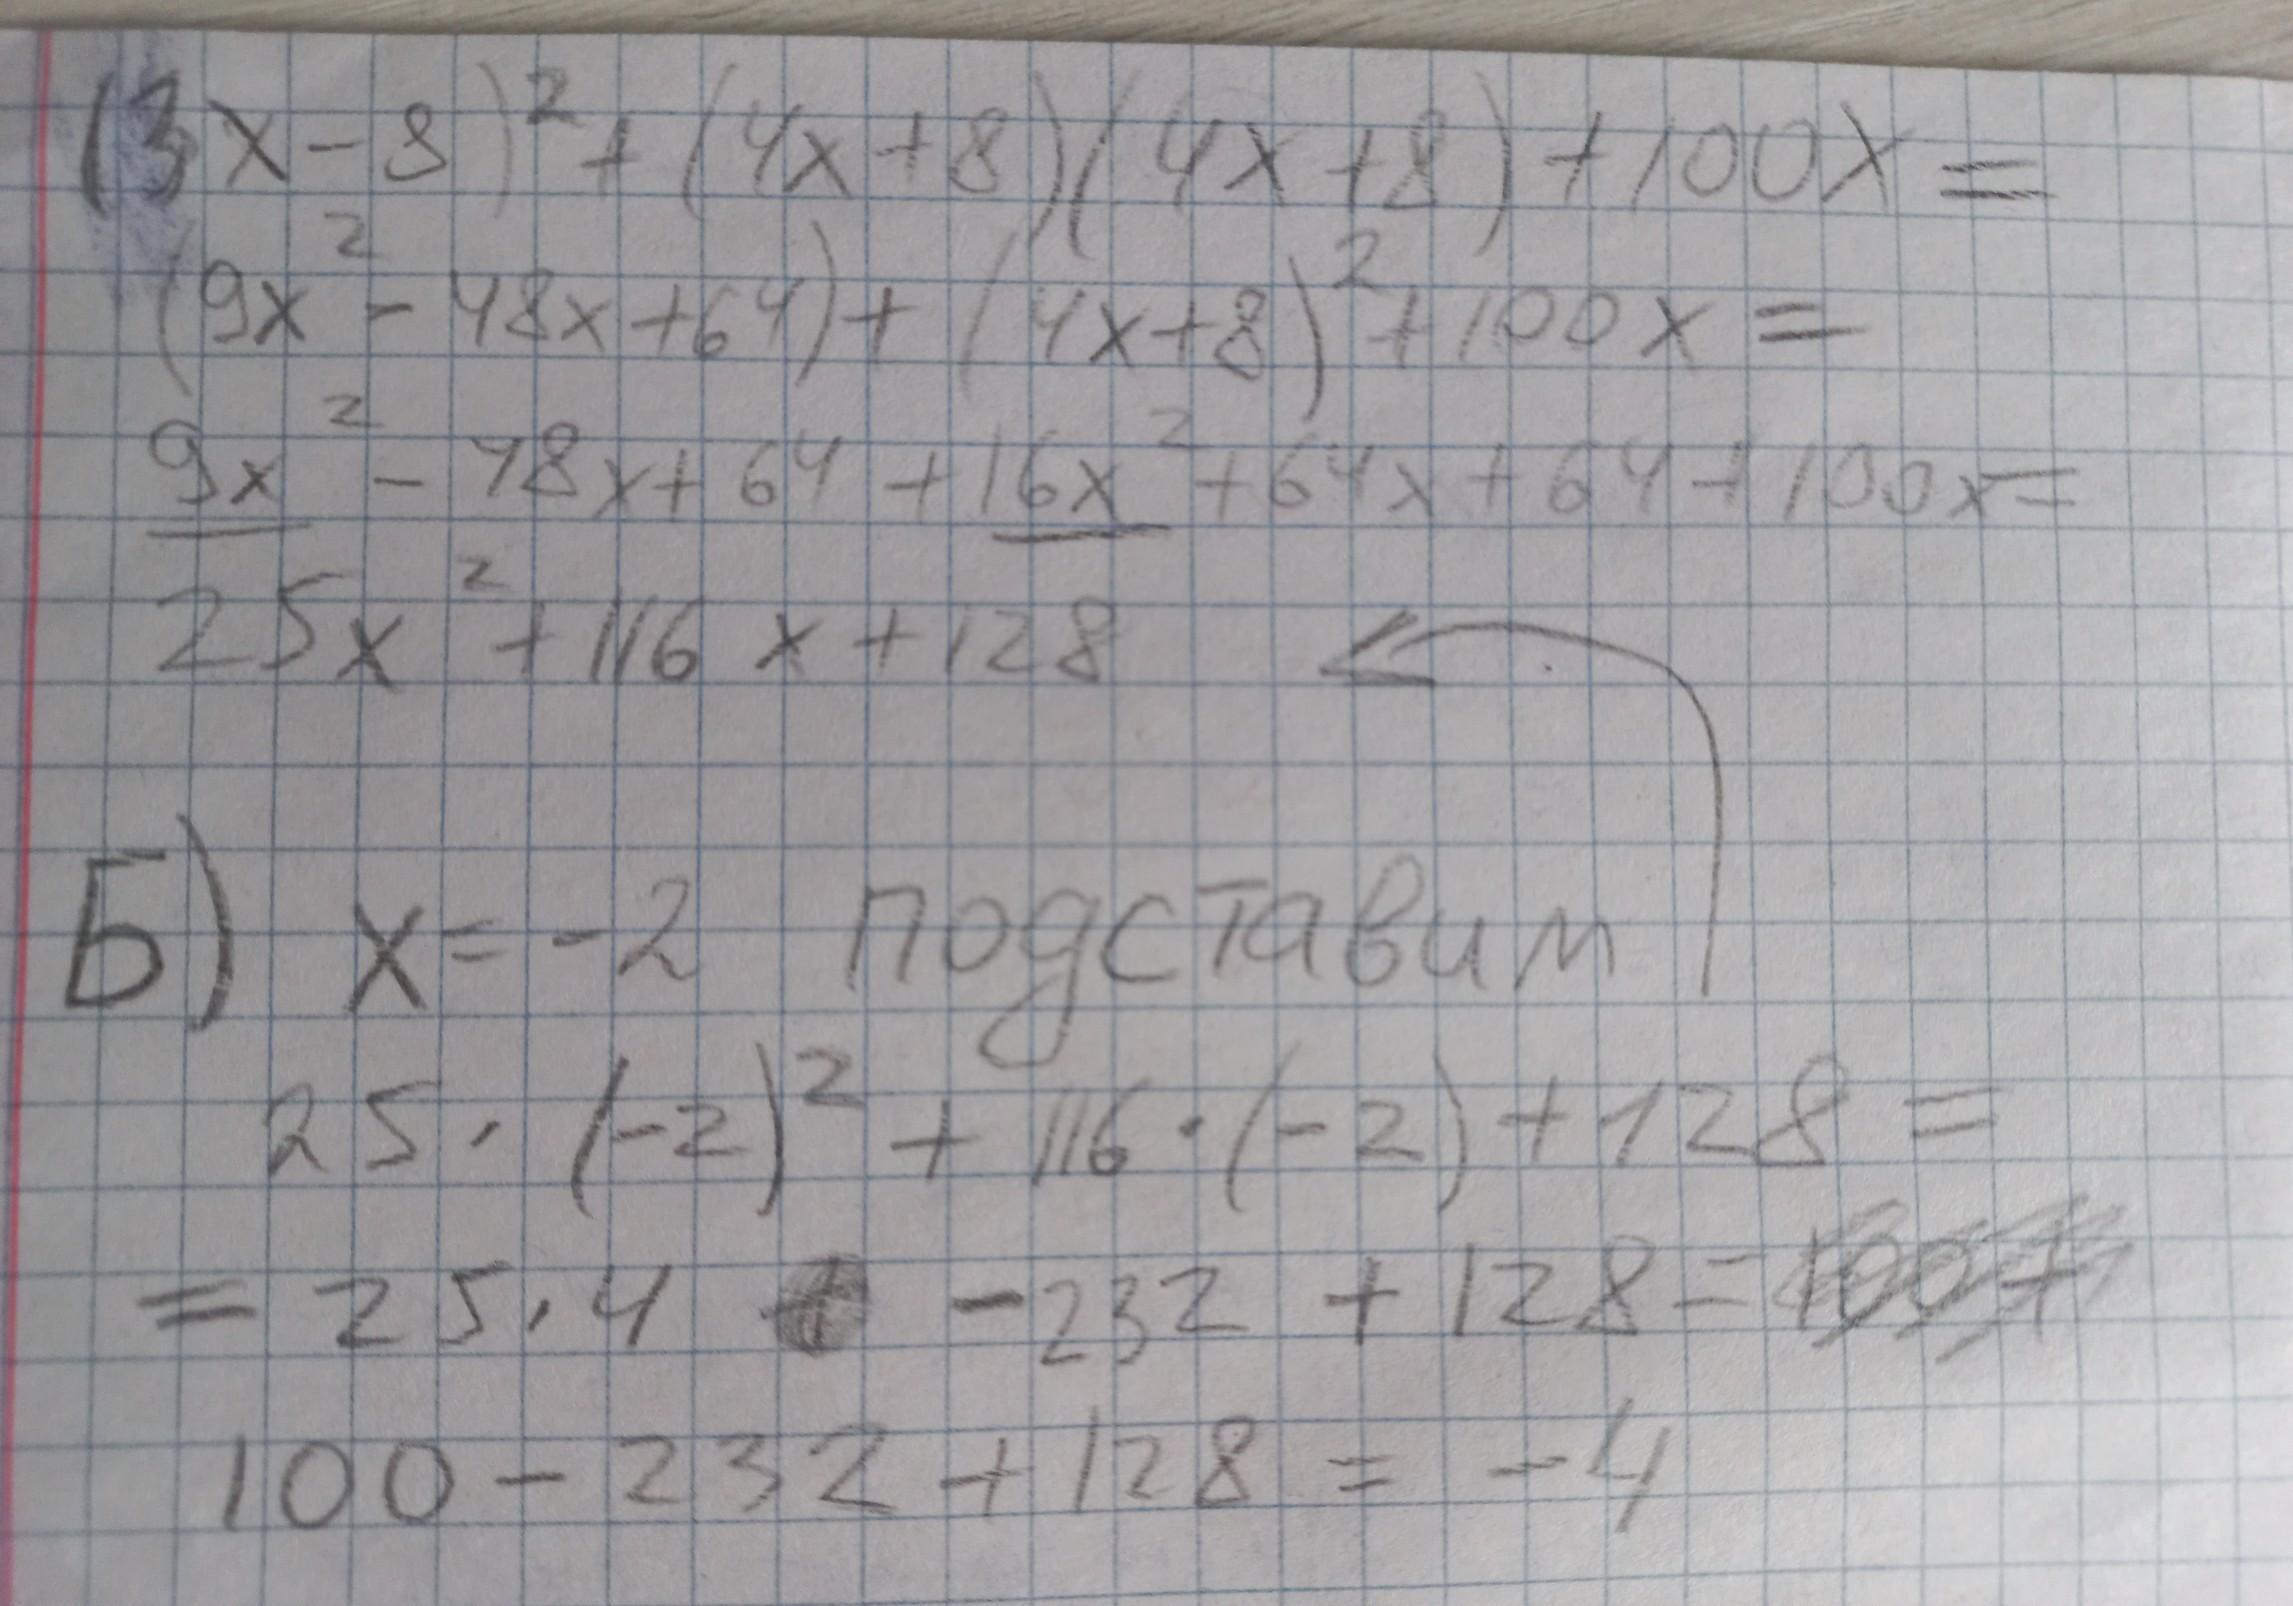 (3x-8)²+(4x+8)(4x+8)+100x=
(9x²-48x+64)+(4x+8)²+100x=
9x²-48x+64+16x²+64x+64+100x=
25x²+116x+128
Б) x=-2 подставим
25·(-2)²+116·(-2)+128=
=25·4 -232+128=
100-232+128=-4